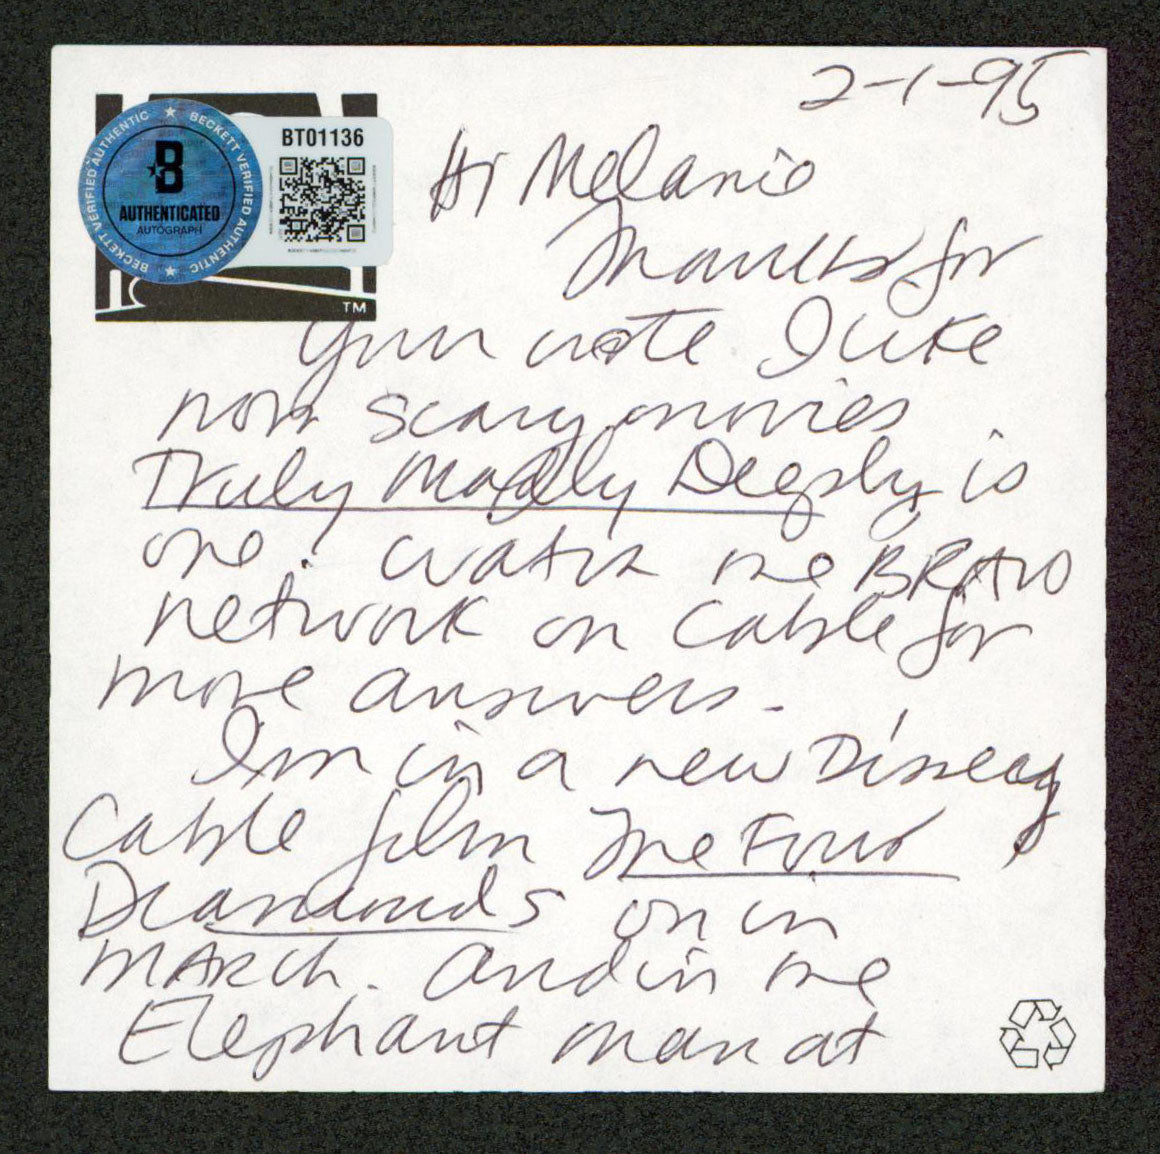 2-1-95
BECKETT VERIFIED AUTHENTIC ★ BECKETT VERIFIED AUTHENTIC ★
B
AUTHENTICATED
AUTOGRAPH
BT01136
TM
Hi Melanie
Thanks for
your note I like
non scary movies.
Truly Madly Deeply is
one. Watch the BRAVO
network on Cable for
more answers.
I'm in a new Disney
Cable film The Four
Diamonds on in
MARCH. and in the
Elephant man at